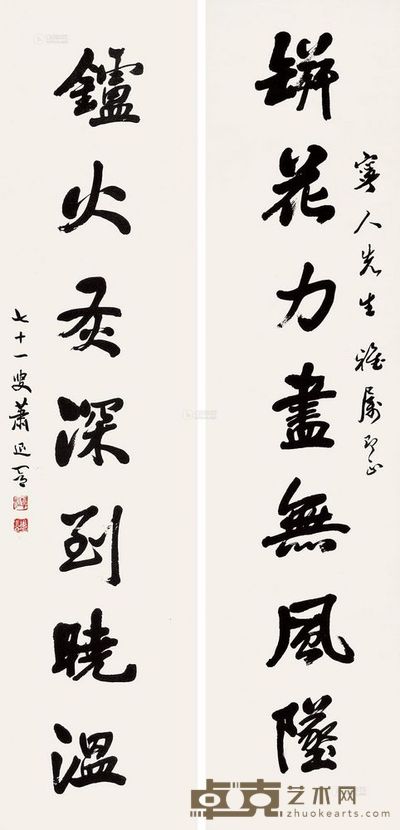 人先生雅屬即正
缾花力盡無風墜
鑪火灰深到曉溫
七十一叟蕭退闇
卓克艺术网
zhuokearts.com